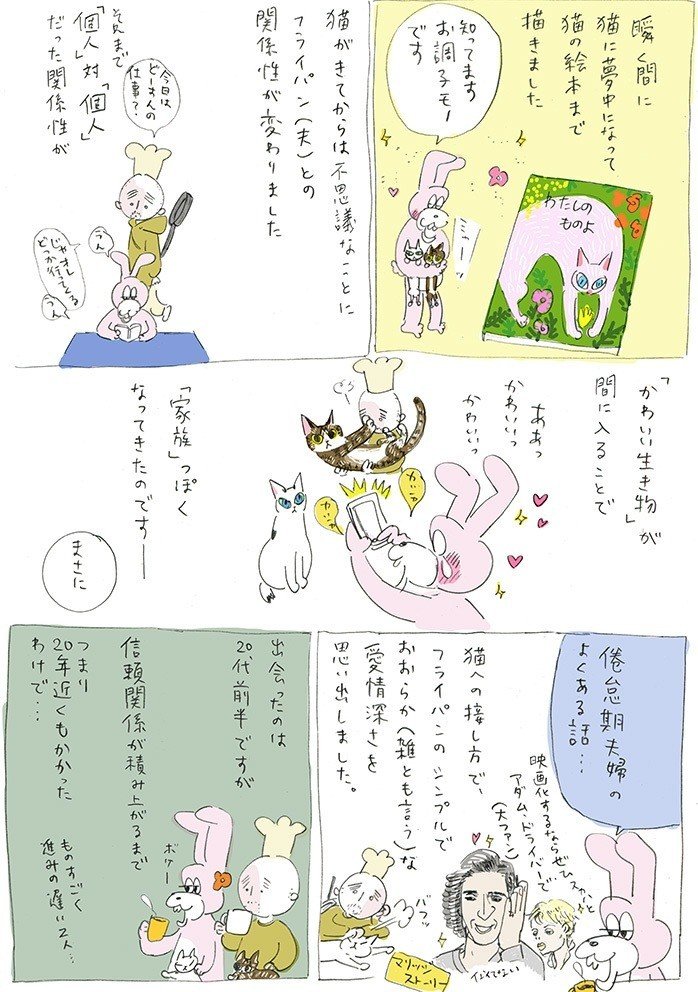 瞬く間に
猫に夢中になって
猫の絵本まで
描きました
知ってます
お調子モノ
です
わたしの
ものよ
ミャーッ
猫がきてからは不思議なことに
フライパン(夫)との
関係性が変わりました
それまで
「個人」対「個人」
だった関係性が
今日は
どーすんの
仕事?
うん
じゃオレ
どっか行ってくる
うん
「かわいい生き物」が
間に入ることで
ああっ
かわいいっ
かわいいっ
カシャ
カシャ
「家族」っぽく
なってきたのですー
まさに
倦怠期夫婦の
よくある話…
猫への接し方で、
フライパンのシンプルで
おおらか(雑とも言う)な
愛情深さを
思い出しました。
映画化するならぜひスカーと
アダム・ドライバーで
(大ファン)
バフッ
マリッジ
ストーリー
似てない
出会ったのは
20代前半ですが
信頼関係が積み上がるまで
つまり
20年近くもかかった
わけで…
ボケー
ものすごく
進みの遅い2人…